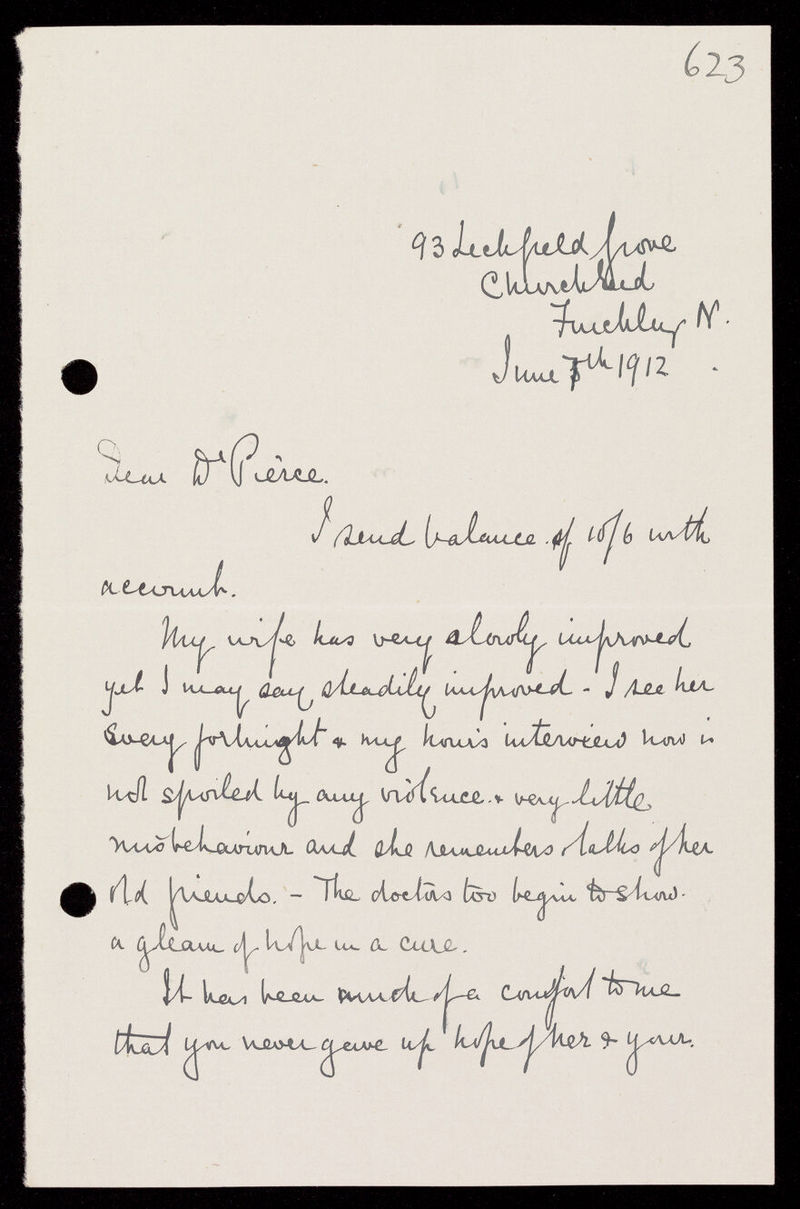 623
93 Lichfield Grove
Church End
Finchley N.
June 7th 1912
Dear Dr Pierce.
I send balance of 10/6 with
account.
My wife has very slowly improved
yet I may say steadily improved - I see her
every fortnight & my hour's interview now is
not spoiled by any violence & very little
misbehaviour and she remembers & talks of her
old friends. - The doctors too begin to show
a gleam of hope in a cure.
It has been much of a comfort to me
that you never gave up hope of her & your